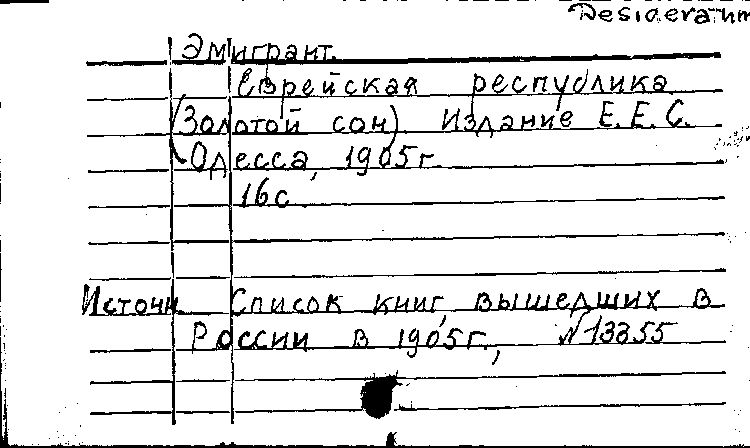 Desideratum
Эмигрант.
Еврейская республика
(Золотой сон). Издание Е.Е.С.
Одесса, 1905г.
16с
Источн. Список книг, вышедших в
России в 1905г., №13355